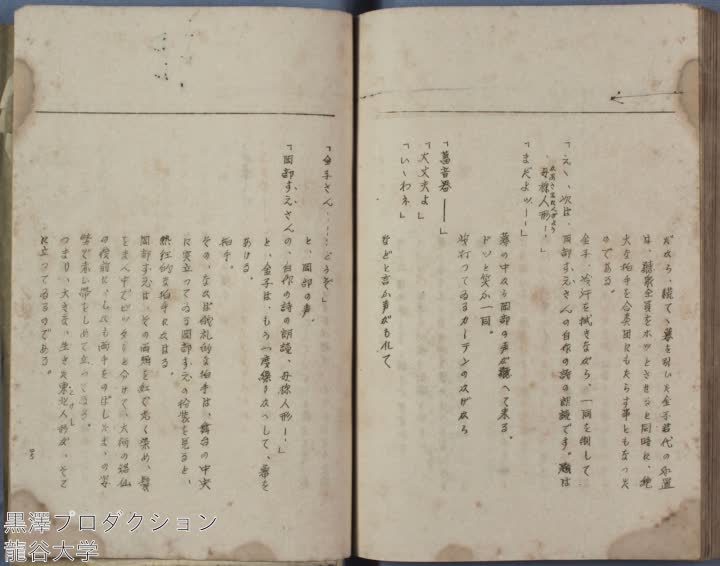 だから、慌てゝ幕を引いた金子時代の処置
は、聴衆全員をホッとさせると同時に、絶
大な拍手を合唱団にもたらす事ともなった
のである。
金子、冷汗を拭きながら、一同を制して
「えゝ、次は、岡部すゑさんの自作の詩の朗読です。題は
、母線人形ー」
「まだよッー」
幕の中から岡部の声が聴へて来る。
ドッと笑ふ一同。
波打つてゐるカーテンの
「蓄音器——」
「大丈夫よ」
「いゝわネ」
などと言ふ声がもれて
「金子さん、ー どうぞ」
と、岡部の声。
「岡部すゑさんの、自作の詩の朗読、母線人形ー」
と、金子は、もう一度繰り返へして、幕を
あける。
拍手。
その、儀礼的な拍手は、舞台の中央
に突立つてゐる岡部すゑの扮装を見ると、
熱狂的な拍手に
岡部すゑは、その両頬を紅で丸く染め、髪
をまん中でピッタリと分けて、
両手をのばしたまゝの姿
帯をしめて立つてゐる。
つまり、大きな、生きた東北人形が、そこ
こけし
に立つてゐるのである。
黒澤プロダクション
龍谷大学